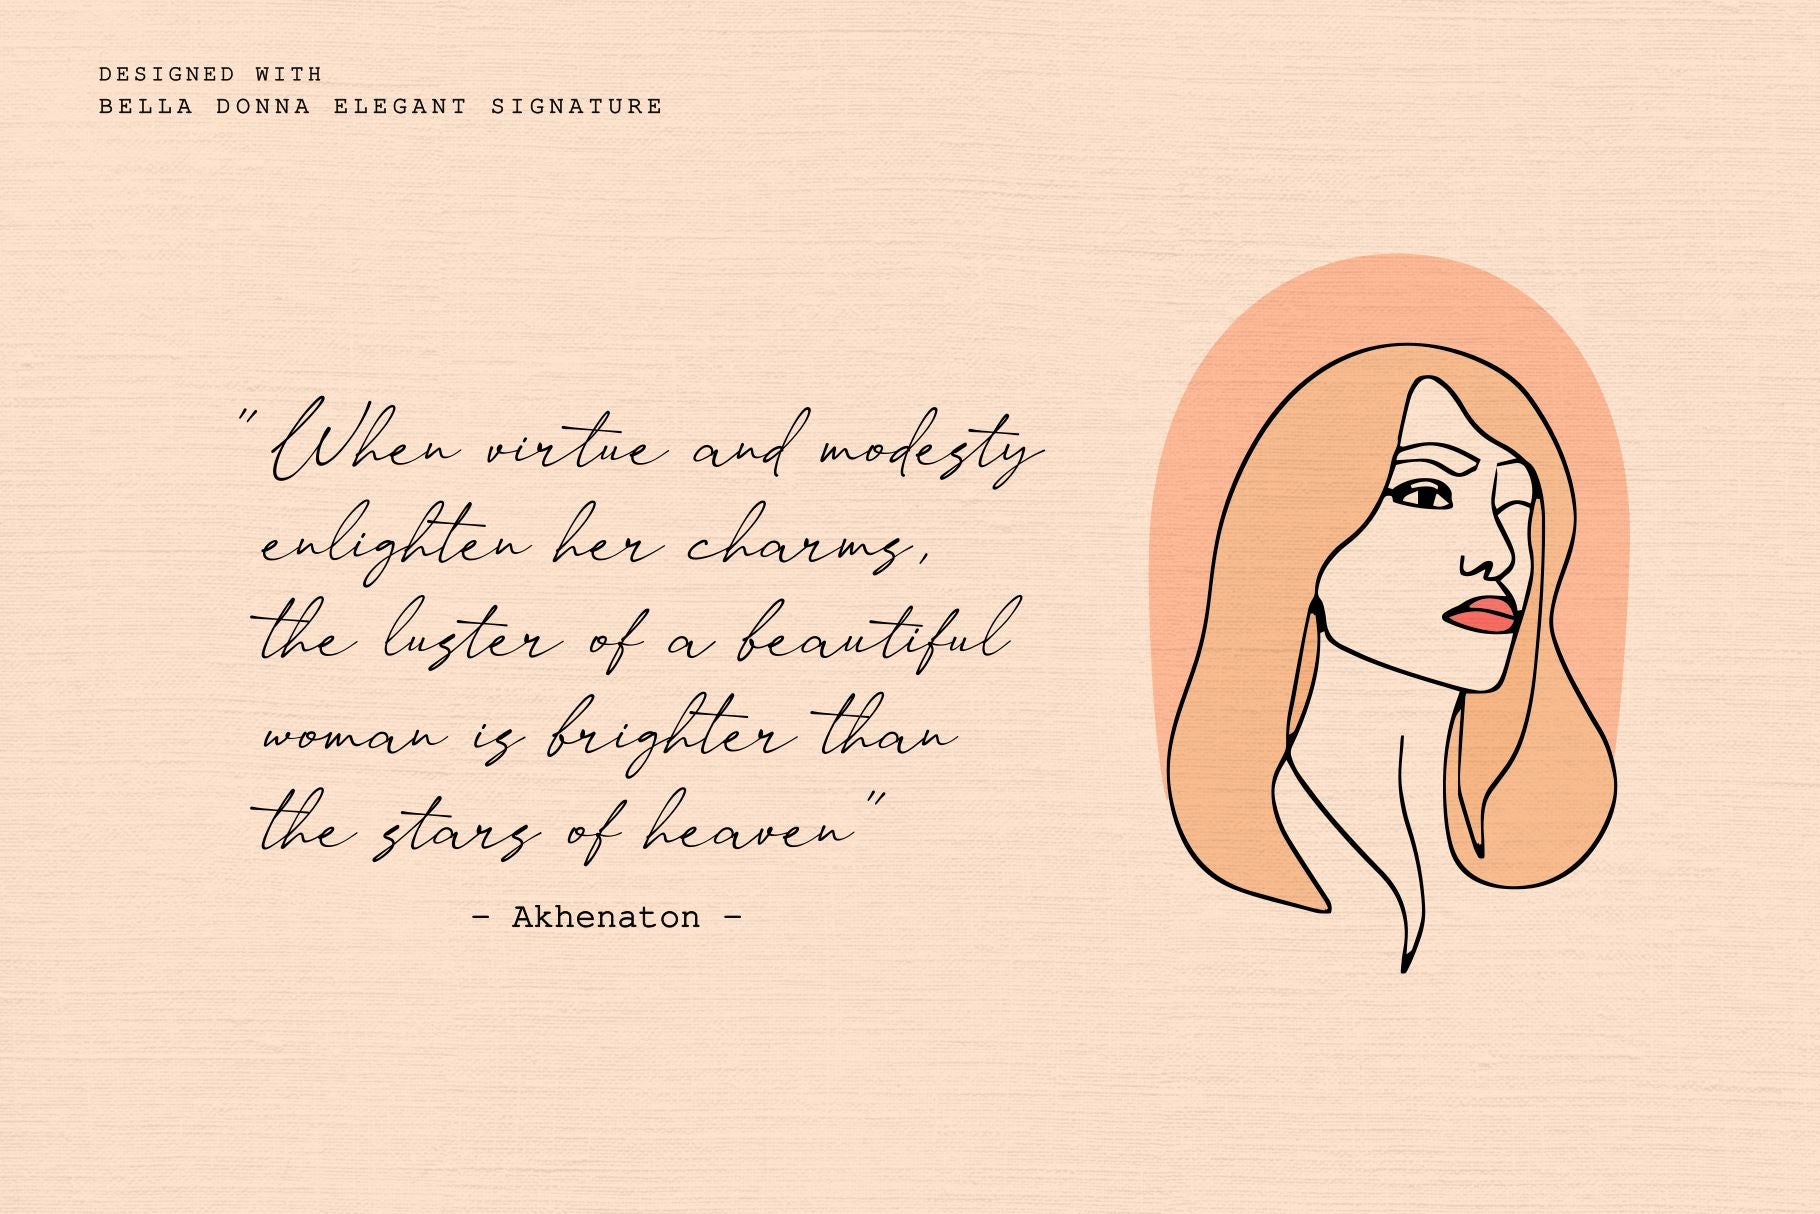 DESIGNED WITH
BELLA DONNA ELEGANT SIGNATURE
"When virtue and modesty
enlighten her charms,
the luster of a beautiful
woman is brighter than
the stars of heaven"
- Akhenaton -